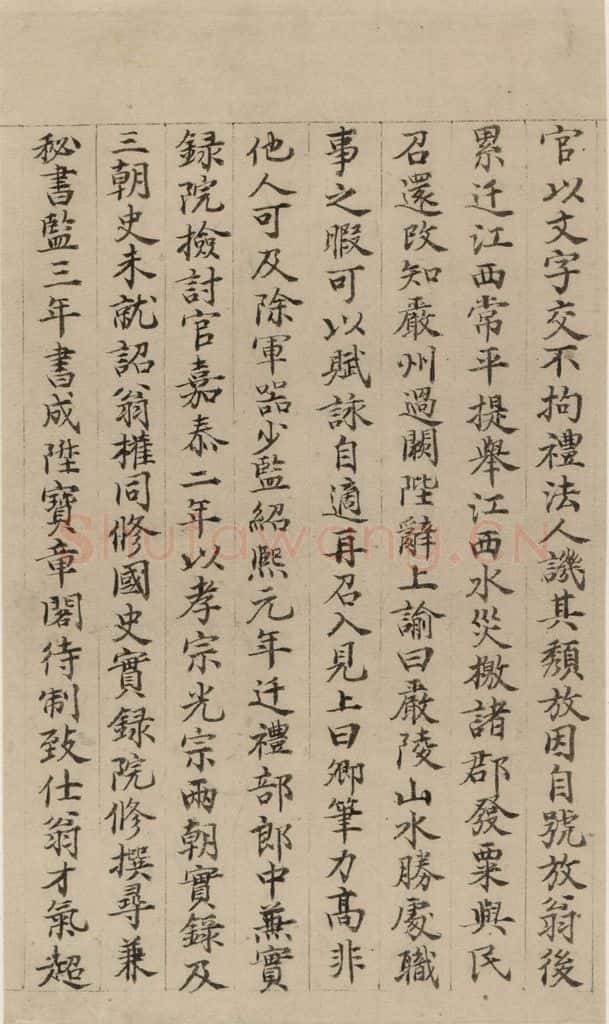 官以文字交不拘禮法人譏其頹放因自號放翁後
累迁江西常平提舉江西水災檄諸郡發粟與民
召還改知嚴州過闕陛辭上諭曰嚴陵山水勝處職
事之暇可以賦詠自適再召入見上曰卿筆力髙非
他人可及除軍器少監紹熙元年迁禮部郎中兼實
録院撿討官嘉泰二年以孝宗光宗兩朝實錄及
三朝史未就詔翁權同修國史實録院修撰尋兼
秘書監三年書成陞寶章閣待制致仕翁才氣超
Shufawang.CN